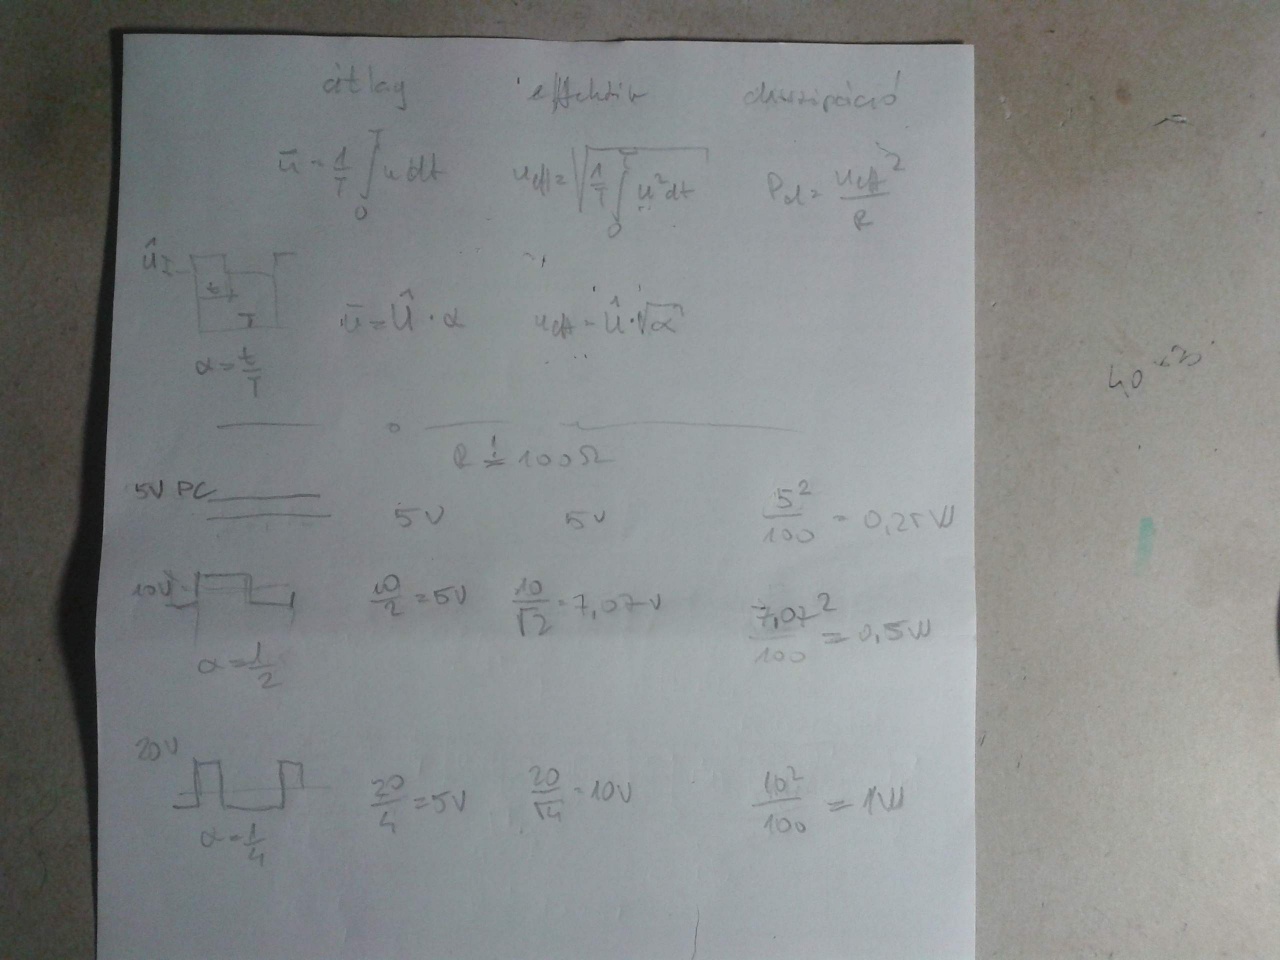 átlag effektív disszipáció
ū = 1/T ∫₀ᵀ u dt u_eff = √(1/T ∫₀ᵀ u² dt) P_d = u_eff²/R
Û
t
T
ū = Û · α u_eff = Û · √α
α = t/T
R != 100Ω
5V DC 5V 5V 5²/100 = 0,25W
10V 10/2 = 5V 10/√2 = 7,07V 7,07²/100 = 0,5W
α = 1/2
20V
20/4 = 5V 20/√4 = 10V 10²/100 = 1W
α = 1/4